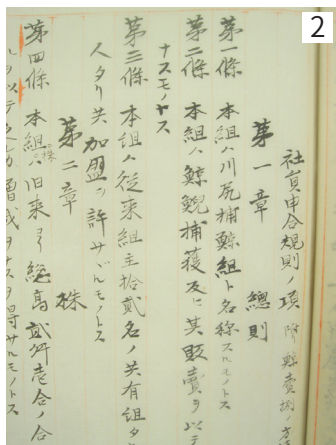 2
社員申合規則ノ項 附 鯨賣捌ノ方法
第一章 總則
第一條 本組ハ川尻捕鯨組ト名称スルモノトス
第二條 本組ハ鯨鯢捕獲及ヒ其販賣ヲ以テ
ナスモノトス
第三條 本組ハ従来組主拾貳名ノ共有組タ
人タリ共加盟ヲ許サヾルモノトス
第二章 株
第四條 本組ハ旧来ヨリ総高貳 壱合ノ合
ヲ以テ 増減ヲナスヲ得サルモノトス